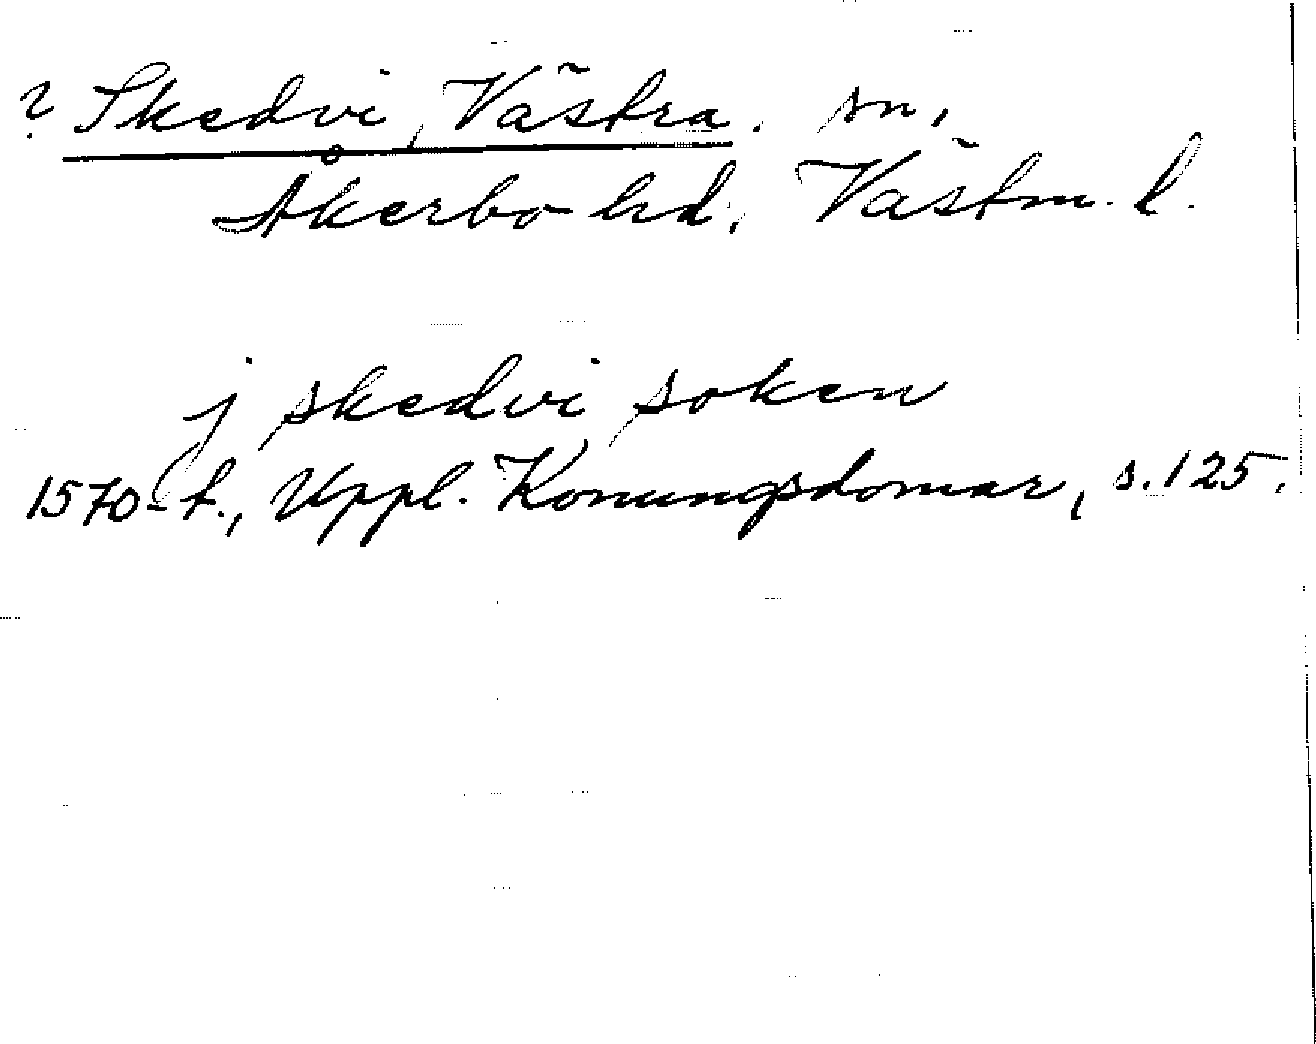 ? Skedvi, Västra. sn,
Åkerbo hd, Västm. l.
j skedvi soken
1570-t., Uppl. Konungsdomar, s. 125.